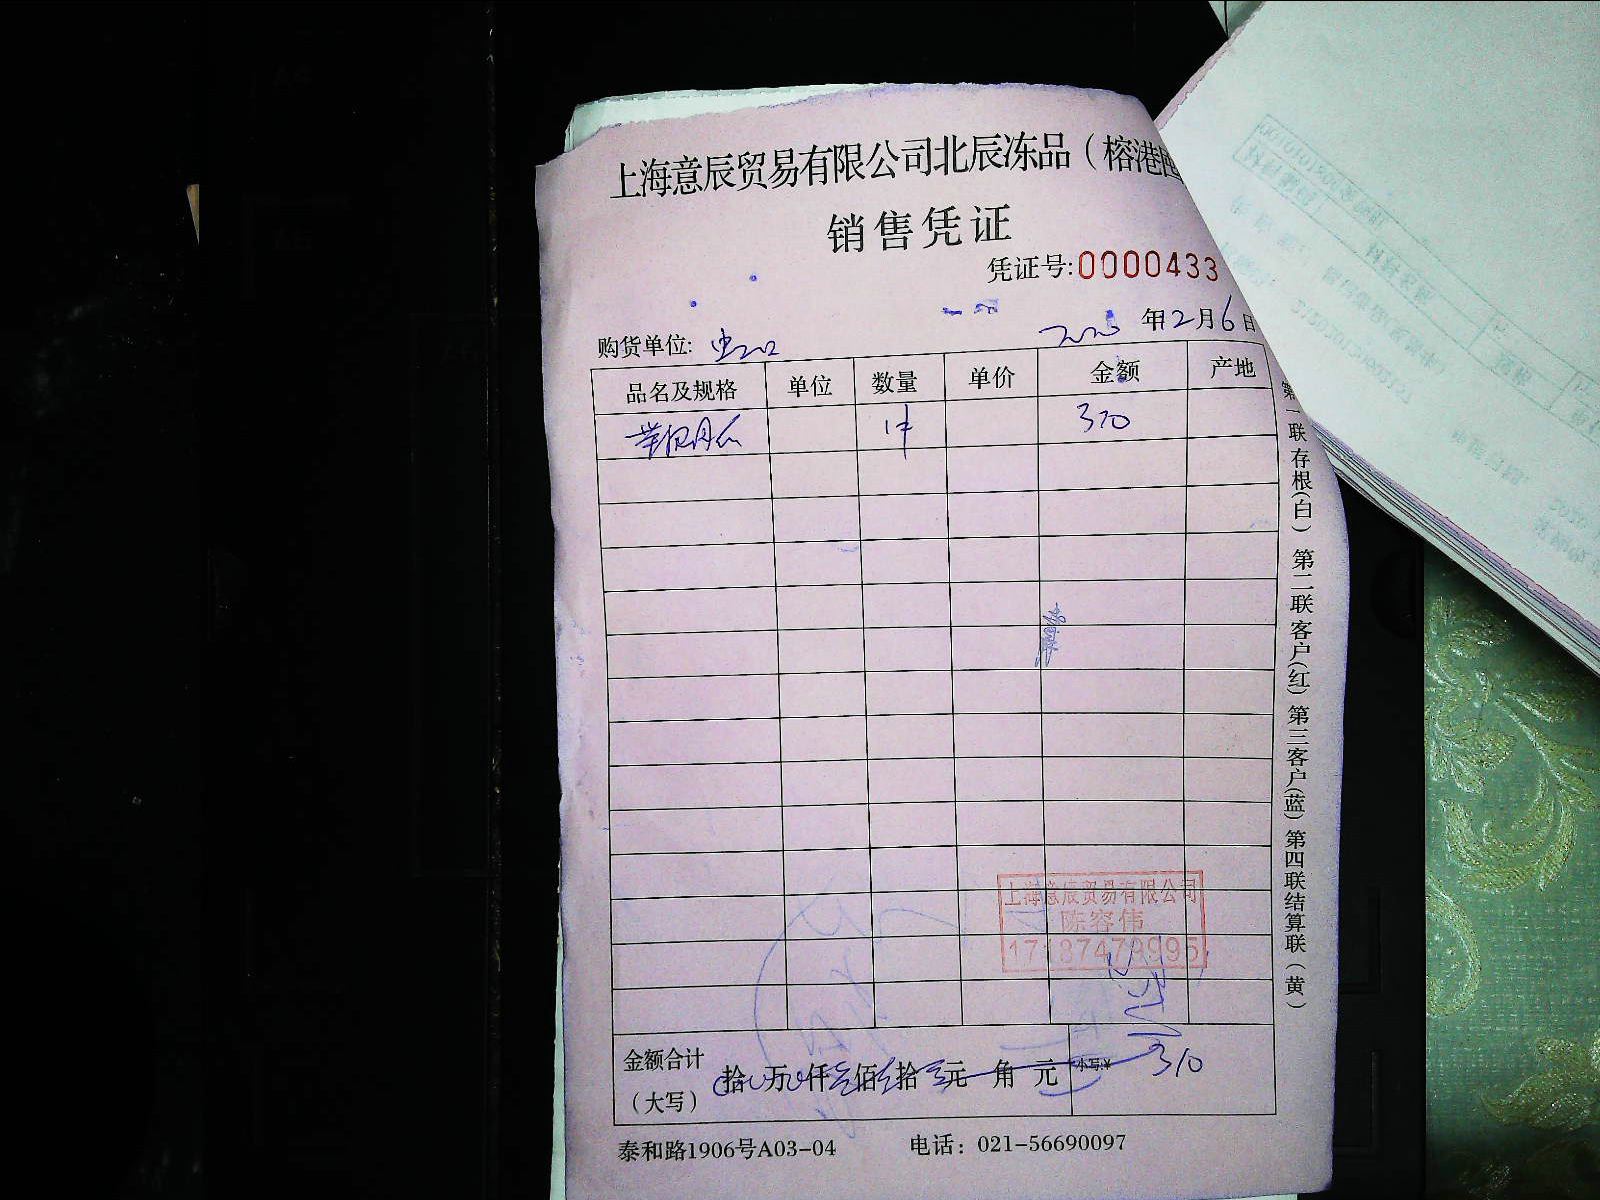 上海意辰贸易有限公司北辰冻品（榕港
销售凭证
凭证号:0000433
购货单位:
年12月6日
品名及规格 单位 数量 单价 金额 产地
1件 370
上海意辰贸易有限公司
陈容伟
17187479995
金额合计（大写） 拾 万 仟 佰 拾 元 角 元 小写:¥ 310
泰和路1906号A03-04 电话：021-56690097
第一联存根(白) 第二联客户(红) 第三客户(蓝) 第四联结算联（黄）